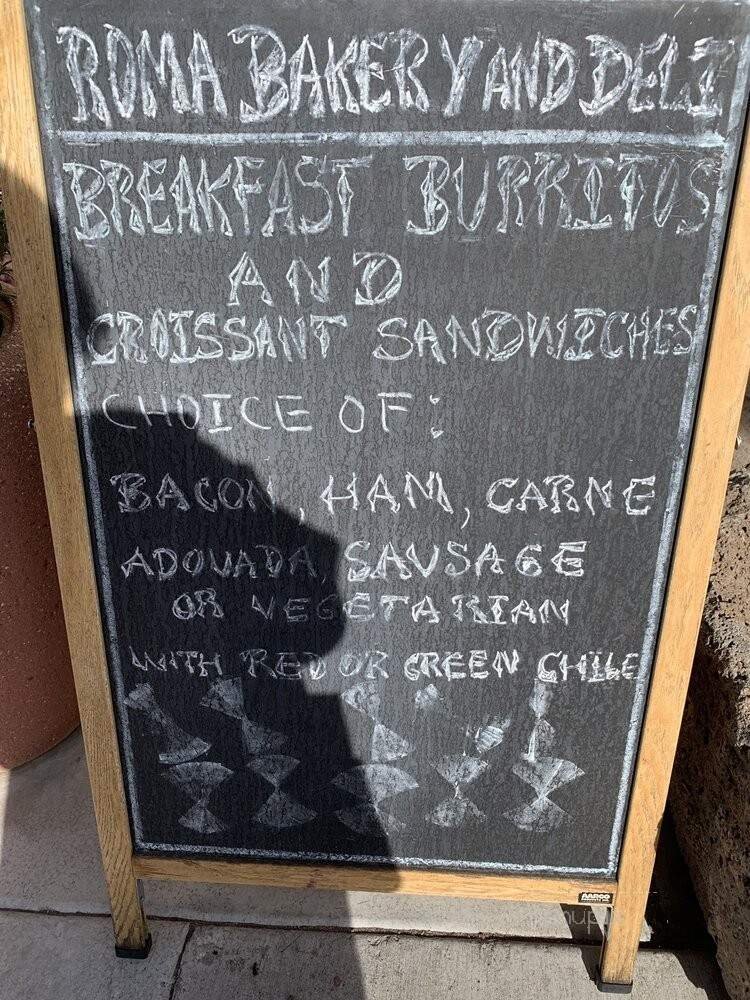 ROMA BAKERY AND DELI
BREAKFAST BURRITOS
AND
CROISSANT SANDWICHES
CHOICE OF:
BACON, HAM, CARNE
ADOVADA, SAUSAGE
OR VEGETARIAN
WITH RED OR GREEN CHILE
AARCO